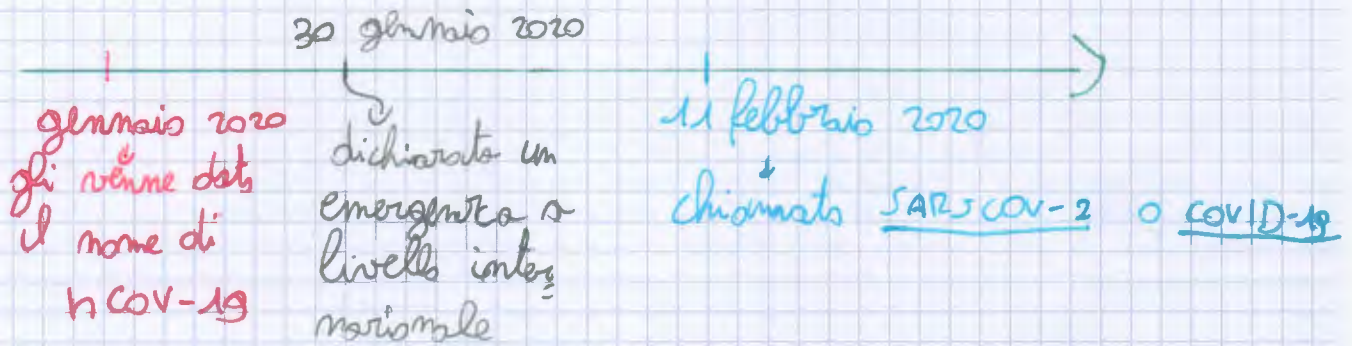 30 gennaio 2020
gennaio 2020
gli venne dato
il nome di
nCOV-19
dichiarata un
emergenza a
livello inter
nazionale
11 febbraio 2020
chiamato SARSCOV-2 o COVID-19